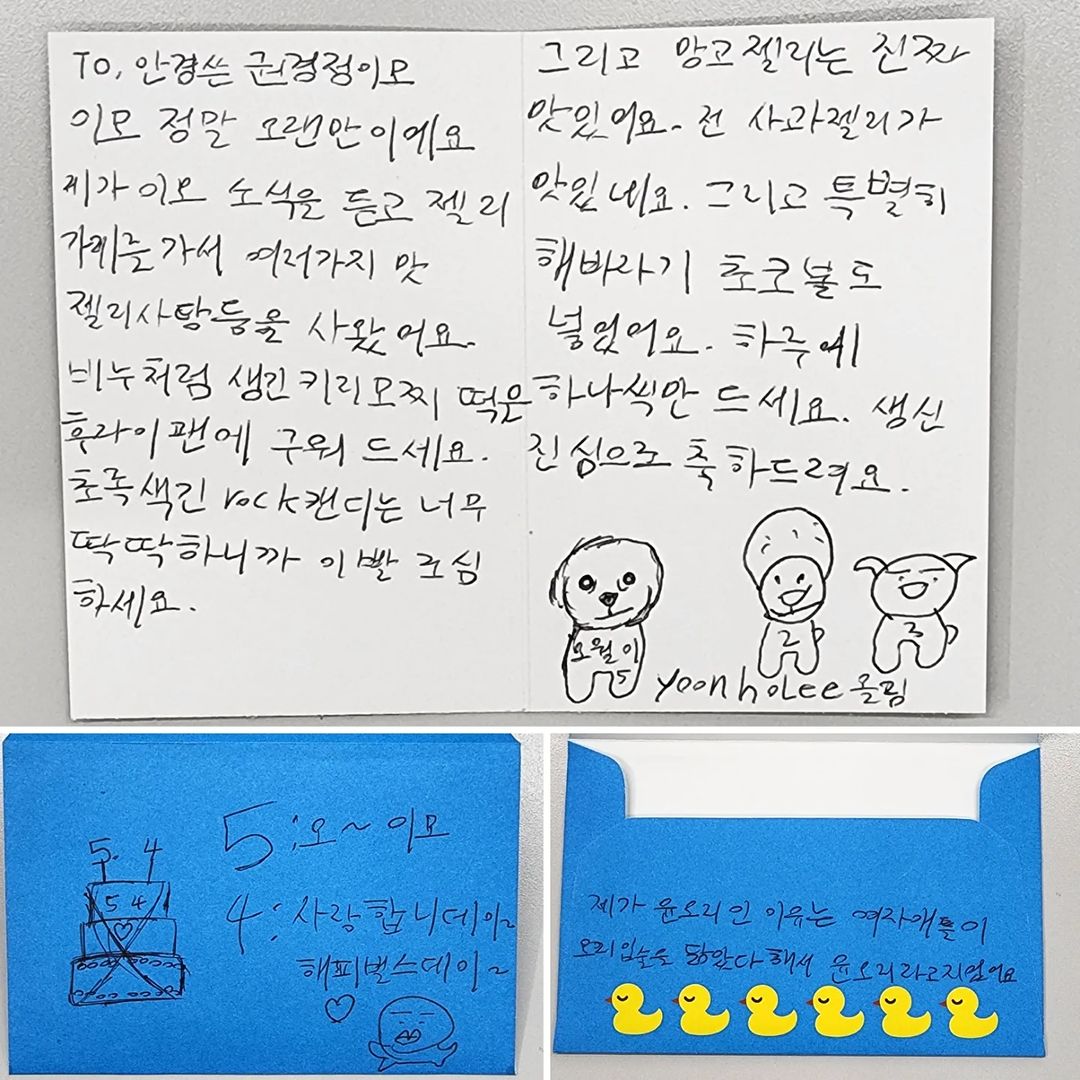 To, 안경쓴 권경정이모
이모 정말 오랜만이에요
제가 이모 소식을 듣고 젤리
가게를 가서 여러가지 맛
젤리사탕등을 사왔어요.
비누처럼 생긴 키리모찌 떡은
후라이팬에 구워 드세요.
초록색긴 rock캔디는 너무
딱딱하니까 이빨 조심
하세요.
그리고 망고젤리는 진짜
맛있어요. 전 사과젤리가
맛있네요. 그리고 특별히
해바라기 초코볼도
넣었어요. 하루에
하나씩만 드세요. 생신
진심으로 축하드려요.
오월이
5
2
3
yoonhoLee 올림
5. 4
5 4
5 : 오~ 이모
4 : 사랑합니데이~
해피벌스데이~
제가 윤오리인 이유는 여자애들이
오리입술을 닮았다해서 윤오리라고지었어요